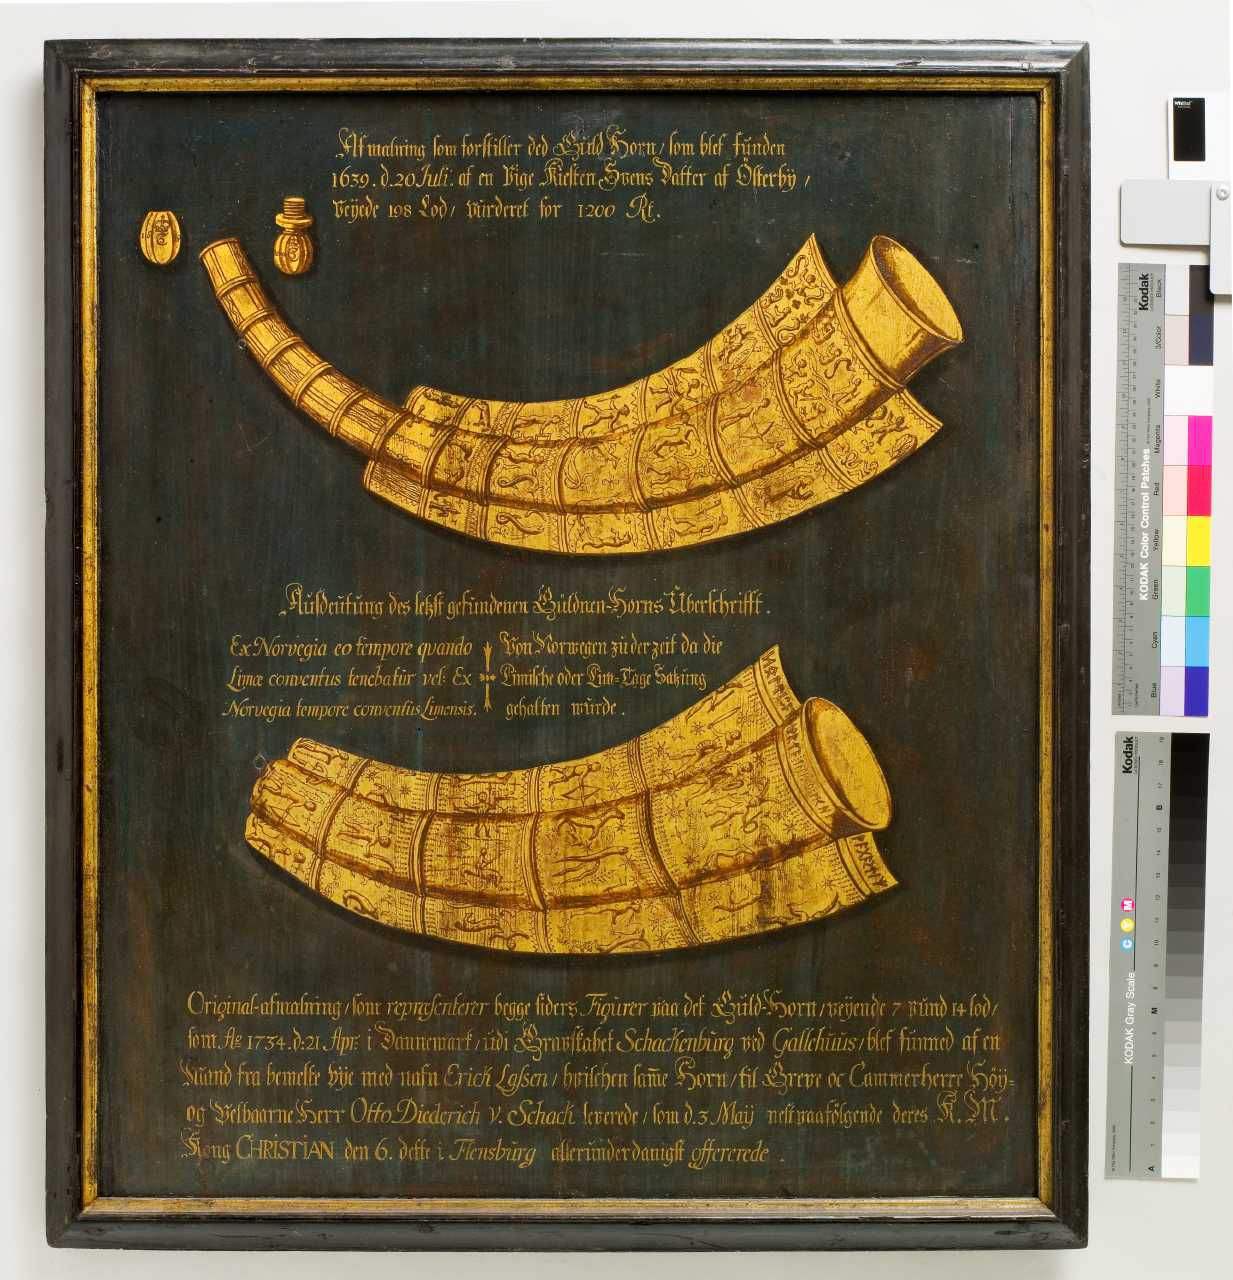 Afmalning som forstiller ded Guld Horn / som blef funden
1639. d. 20 Juli. af en Pige Kiesten Svens Datter af Österbÿ /
veÿede 198 Lod / vurderet for 1200 Rt.
Ausdeutung des letzt gefundenen Güldnen-Horns Überschrifft.
Ex Norvegia eo tempore quando
Limæ conventus tenebatur vel: Ex
Norvegia tempore conventus Limensis.
Von Norwegen zu der zeit da die
Limische oder Lim-Tage Satzung
gehalten wurde.
Original-afmalning / som repræsenterer begge siders Figurer paa det Guld-Horn / veÿende 7 pund 14 lod /
som Ao 1734. d: 21. Apr: i Dannemark / udi Gravskabet Schackenburg ved Gallehuus / blef funned af en
Mand fra bemelte bÿe med nafn Erick Lassen / hvilchen same Horn / til Greve oc Cammerherre Höÿ-
og Velbaarne Herr Otto Diederich v. Schack leverede / som d. 3 Maÿ nestpaafölgende deres K. M.
Kong CHRISTIAN den 6. dette i Flensburg allerunderdanigst offererede.
Kodak
KODAK Color Control Patches
Blue
Cyan
Green
Yellow
Red
Magenta
White
3/Color
Black
Kodak
KODAK Gray Scale
C Y M
A
M
B